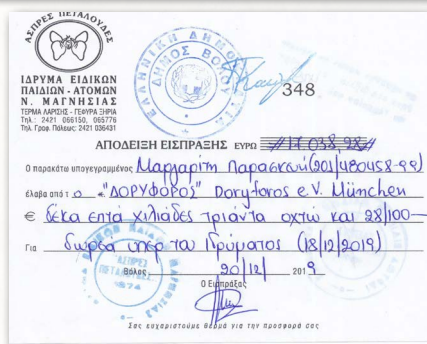 ΑΣΠΡΕΣ ΠΕΤΑΛΟΥΔΕΣ
ΙΔΡΥΜΑ ΕΙΔΙΚΩΝ
ΠΑΙΔΙΩΝ - ΑΤΟΜΩΝ
Ν. ΜΑΓΝΗΣΙΑΣ
ΤΕΡΜΑ ΛΑΡΙΣΗΣ - ΓΕΦΥΡΑ ΞΗΡΙΑ
Τηλ.: 2421 066150, 065776
Τηλ. Γραφ. Πόλεως: 2421 036431
ΕΛΛΗΝΙΚΗ ΔΗΜΟΚΡΑΤΙΑ
ΔΗΜΟΣ ΒΟΛΟΥ
348
ΑΠΟΔΕΙΞΗ ΕΙΣΠΡΑΞΗΣ ΕΥΡΩ #17.038,28#
Ο παρακάτω υπογεγραμμένος Μαργαρίτη Παρασκευή (201/480458-99)
έλαβα από τ ο "ΔΟΡΥΦΟΡΟΣ" Doryforos e.V. München
€ δέκα επτά χιλιάδες τριάντα οχτώ και 28/100-
Για δωρεά υπέρ του Ιδρύματος (18/12/2019)
Βόλος, 20/12/ 2019
Ο Εισπράξας
Σας ευχαριστούμε θερμά για την προσφορά σας